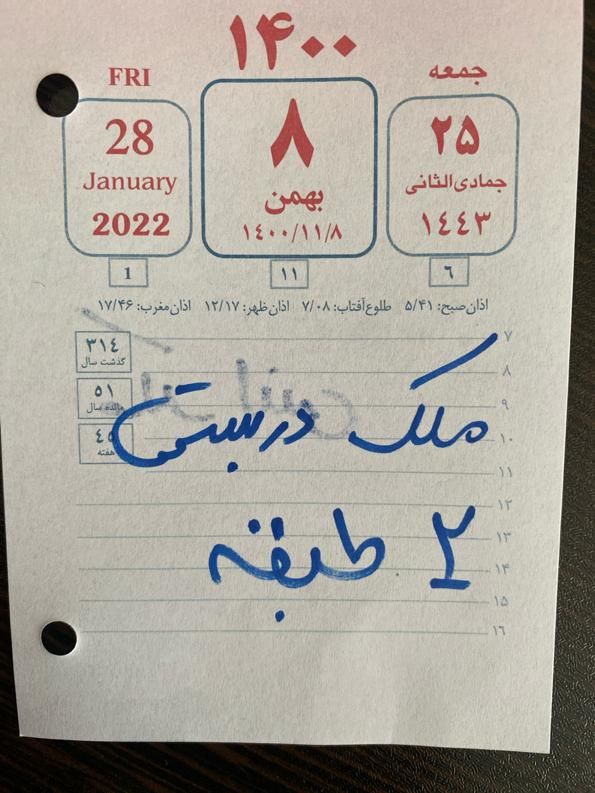 ۱۴۰۰
جمعه
۲۵
جمادی‌الثانی
۱۴۴۳
۶
۸
بهمن
۱۴۰۰/۱۱/۸
۱۱
FRI
28
January
2022
1
اذان صبح: ۵/۴۱ طلوع آفتاب: ۷/۰۸ اذان ظهر: ۱۲/۱۷ اذان مغرب: ۱۷/۴۶
۳۱۴
گذشت سال
۵۱
مانده سال
۴۵
هفته
۷
۸
۹
۱۰
۱۱
۱۲
۱۳
۱۴
۱۵
۱۶
ملک دربستی
۲ طبقه